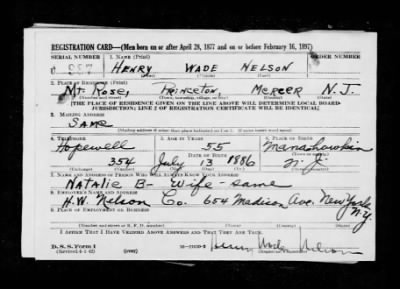 REGISTRATION CARD—(Men born on or after April 28, 1877 and on or before February 16, 1897)
SERIAL NUMBER 1. NAME (Print) ORDER NUMBER
U 957 HENRY WADE NELSON
2. PLACE OF RESIDENCE (Print)
Mt. Rose, Princeton, Mercer N. J.
[THE PLACE OF RESIDENCE GIVEN ON THE LINE ABOVE WILL DETERMINE LOCAL BOARD JURISDICTION; LINE 2 OF REGISTRATION CERTIFICATE WILL BE IDENTICAL]
3. MAILING ADDRESS
Same
[Mailing address if other than place indicated on line 2. If same insert word same]
4. TELEPHONE 5. AGE IN YEARS 6. PLACE OF BIRTH
Hopewell 55 Manahawkin
DATE OF BIRTH
354 July 13 1886 N. J.
7. NAME AND ADDRESS OF PERSON WHO WILL ALWAYS KNOW YOUR ADDRESS
Natalie B- Wife - same
8. EMPLOYER'S NAME AND ADDRESS
H.W. Nelson Co. 654 Madison Ave. New York
9. PLACE OF EMPLOYMENT OR BUSINESS N.Y.
I AFFIRM THAT I HAVE VERIFIED ABOVE ANSWERS AND THAT THEY ARE TRUE.
D. S. S. Form 1
(Revised 4-1-42) Henry Wade Nelson